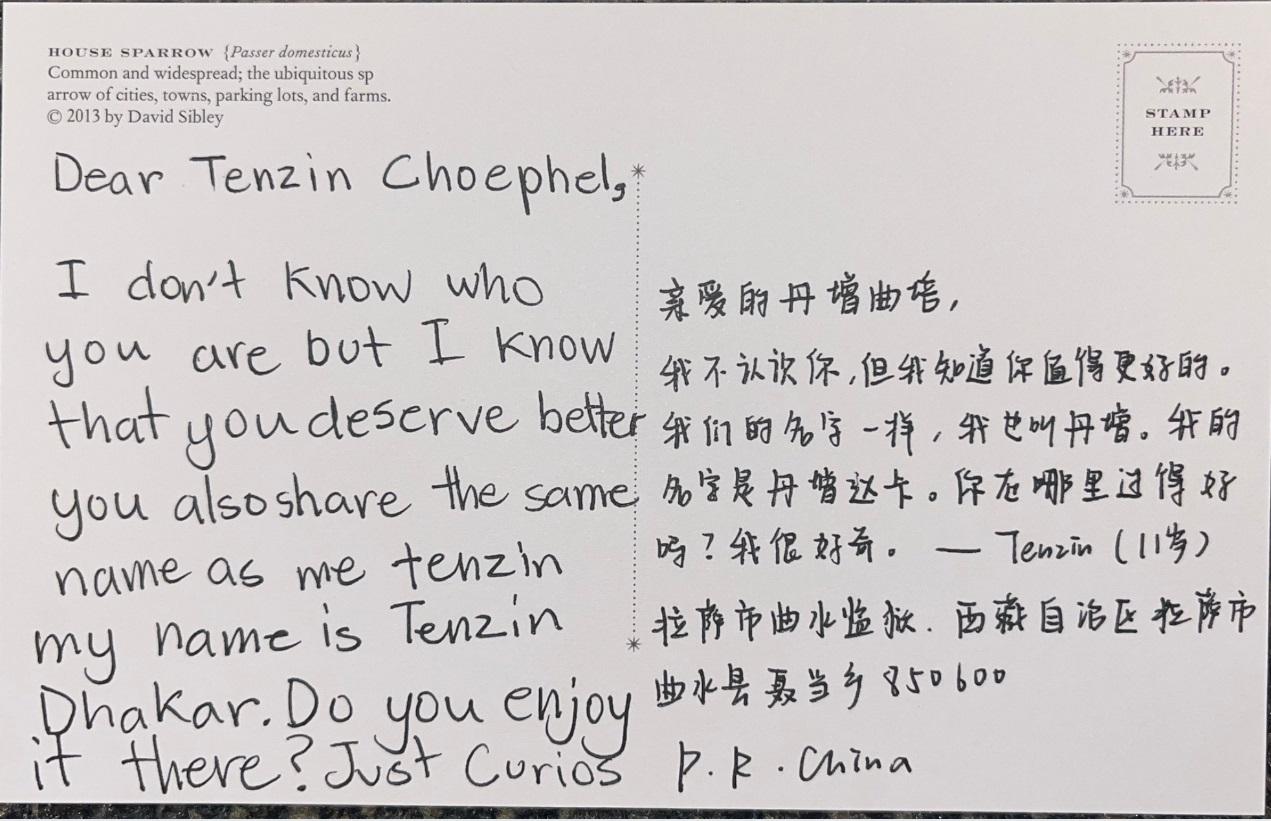 HOUSE SPARROW {Passer domesticus}
Common and widespread; the ubiquitous sp
arrow of cities, towns, parking lots, and farms.
© 2013 by David Sibley
STAMP
HERE
Dear Tenzin Choephel,
I don't know who
you are but I know
that you deserve better
you also share the same
name as me tenzin
my name is Tenzin
Dhakar. Do you enjoy
it there? Just Curios
亲爱的丹增曲培,
我不认识你,但我知道你值得更好的。
我们的名字一样,我也叫丹增。我的
名字是丹增达卡。你在哪里过得好
吗?我很好奇。 — Tenzin (11岁)
拉萨市曲水监狱. 西藏自治区拉萨市
曲水县聂当乡 850600
P. R. China